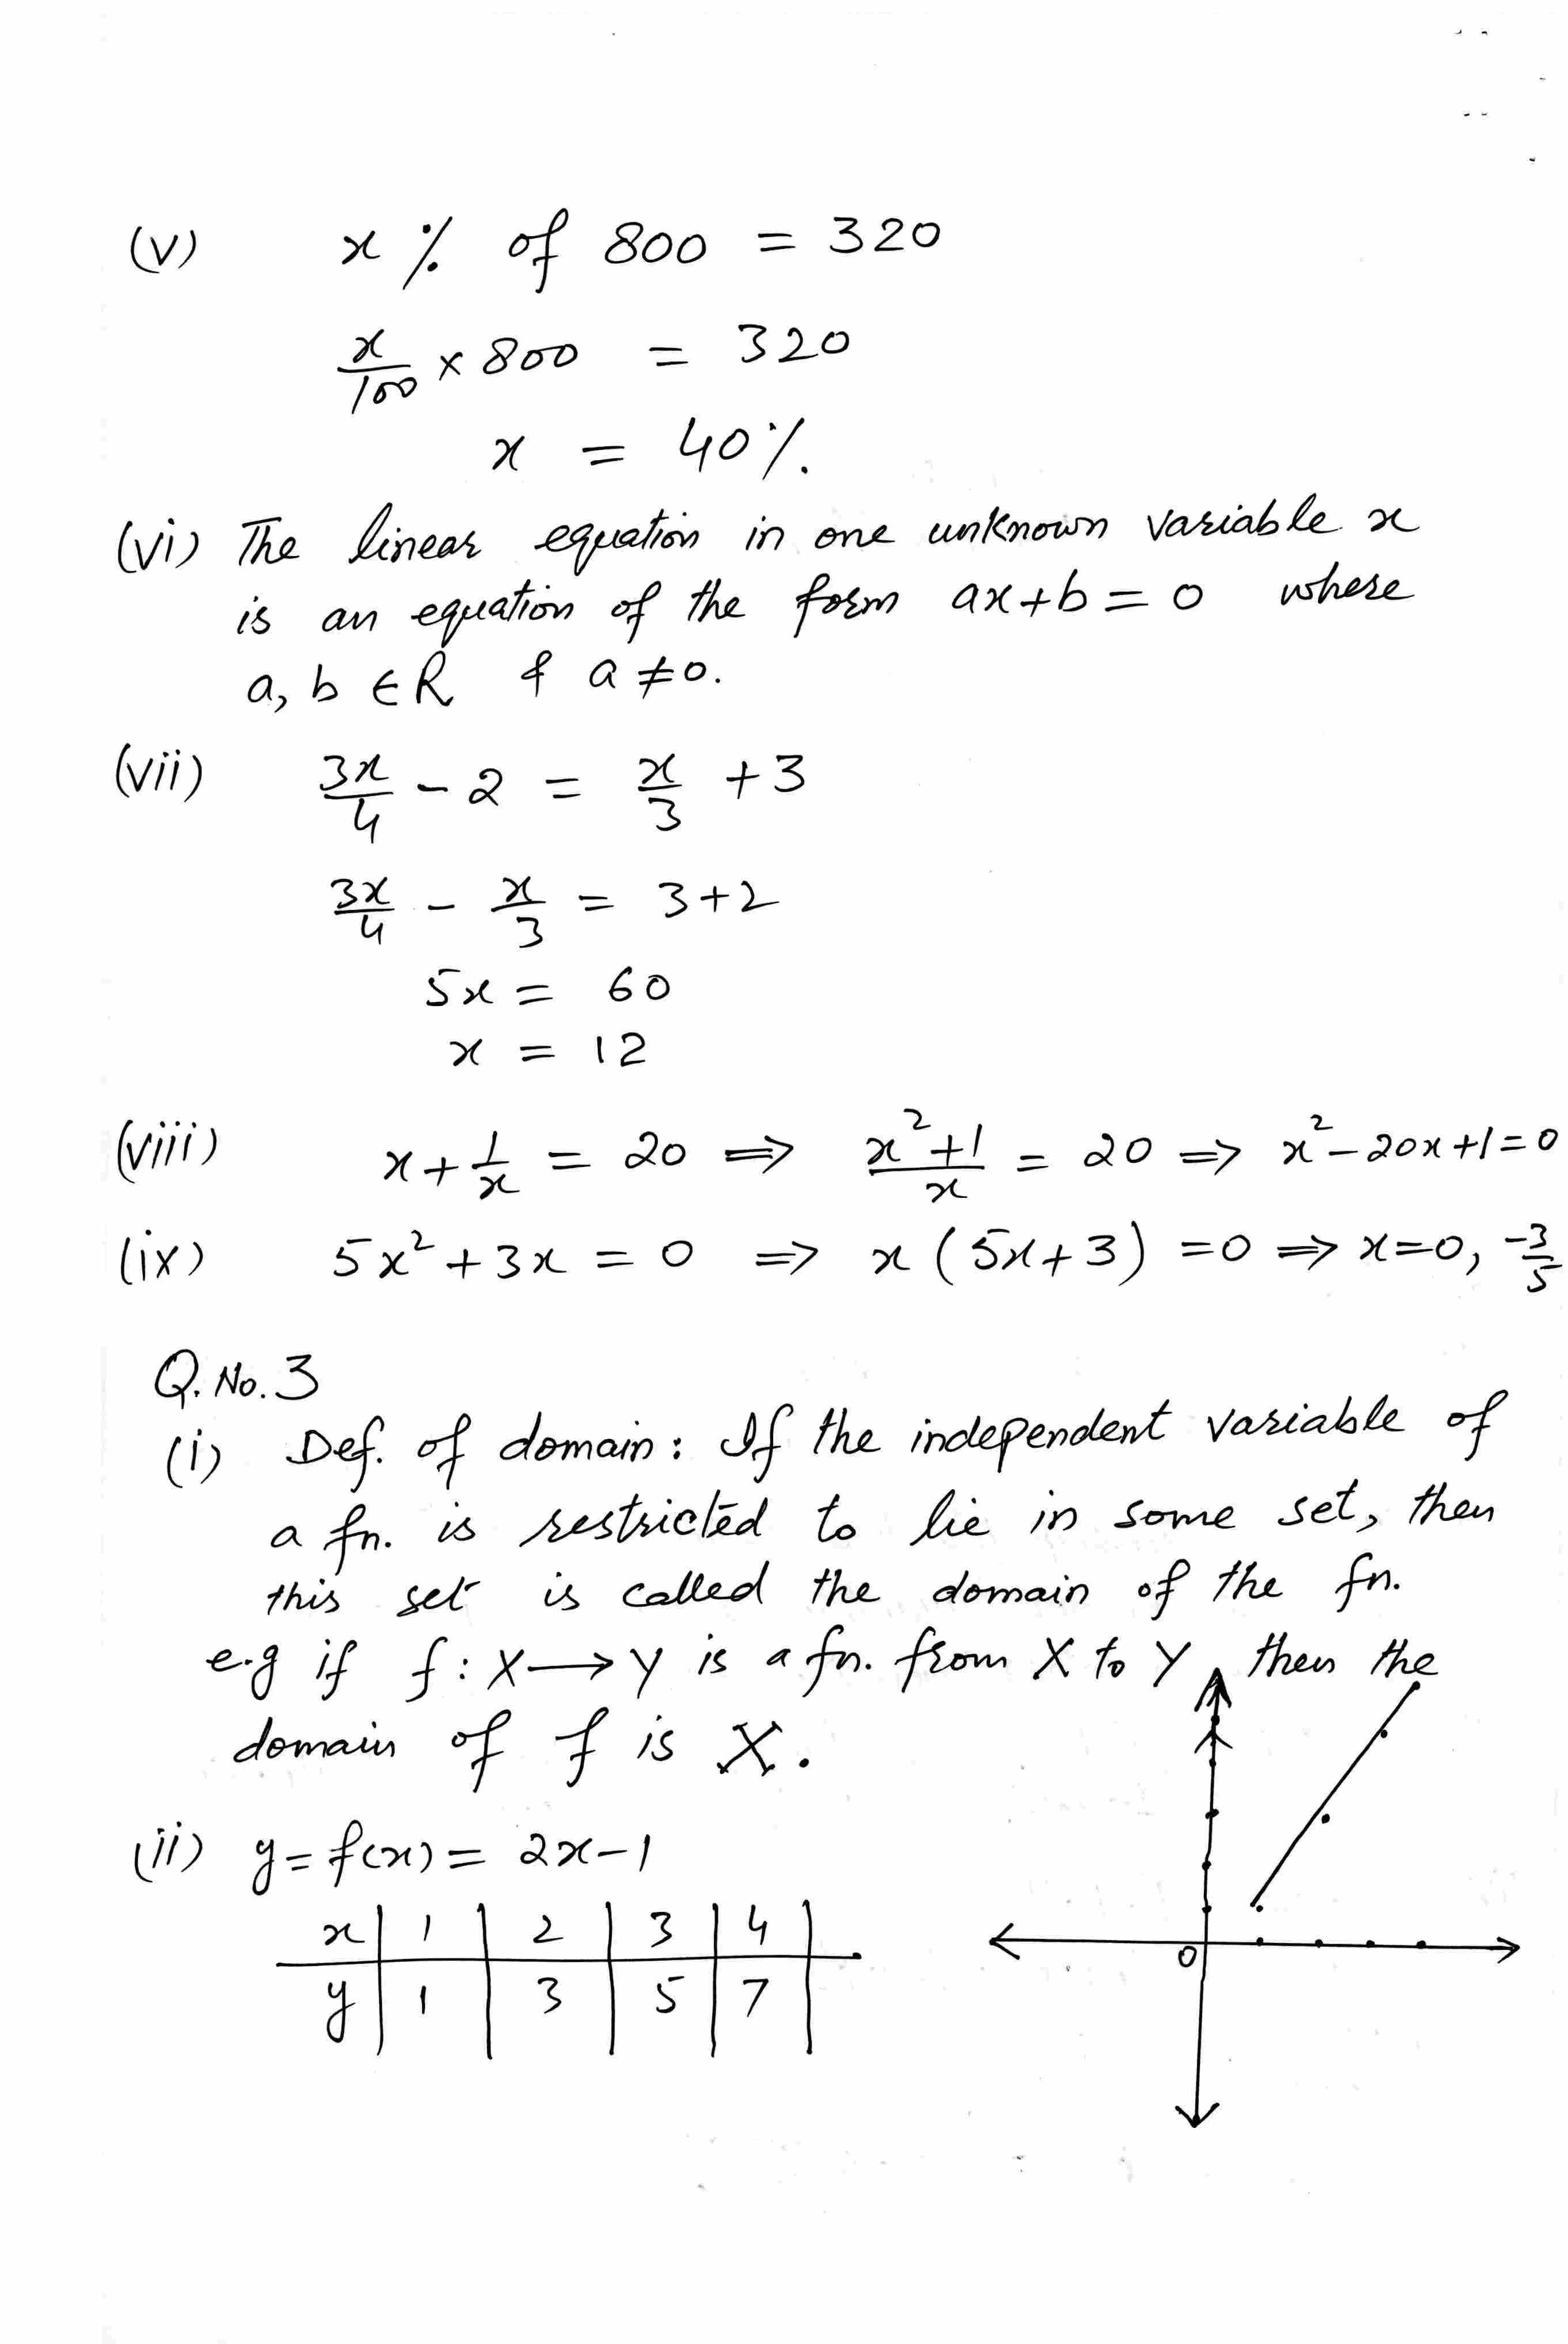 (v) x % of 800 = 320
x/100 × 800 = 320
x = 40%.
(vi) The linear equation in one unknown variable x
is an equation of the form ax+b=0 where
a, b ∈ R & a ≠ 0.
(vii) 3x/4 - 2 = x/3 + 3
3x/4 - x/3 = 3+2
5x = 60
x = 12
(viii) x + 1/x = 20 ⇒ x²+1/x = 20 ⇒ x²-20x+1=0
(ix) 5x²+3x = 0 ⇒ x(5x+3) = 0 ⇒ x=0, -3/5
Q. No. 3
(i) Def. of domain: If the independent variable of
a fn. is restricted to lie in some set, then
this set is called the domain of the fn.
e.g if f: X → Y is a fn. from X to Y then the
domain of f is X.
(ii) y = f(x) = 2x-1
x | 1 | 2 | 3 | 4 |
y | 1 | 3 | 5 | 7 |
0